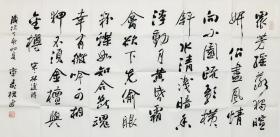 衆芳摇落獨暄
妍佔盡風情
向小園疏影横
斜水清淺暗香
浮動月黄昏霜
禽欲下先偷眼
粉蝶如知合斷魂
幸有微吟可相
狎不須檀板共
金樽 宋林逋詩